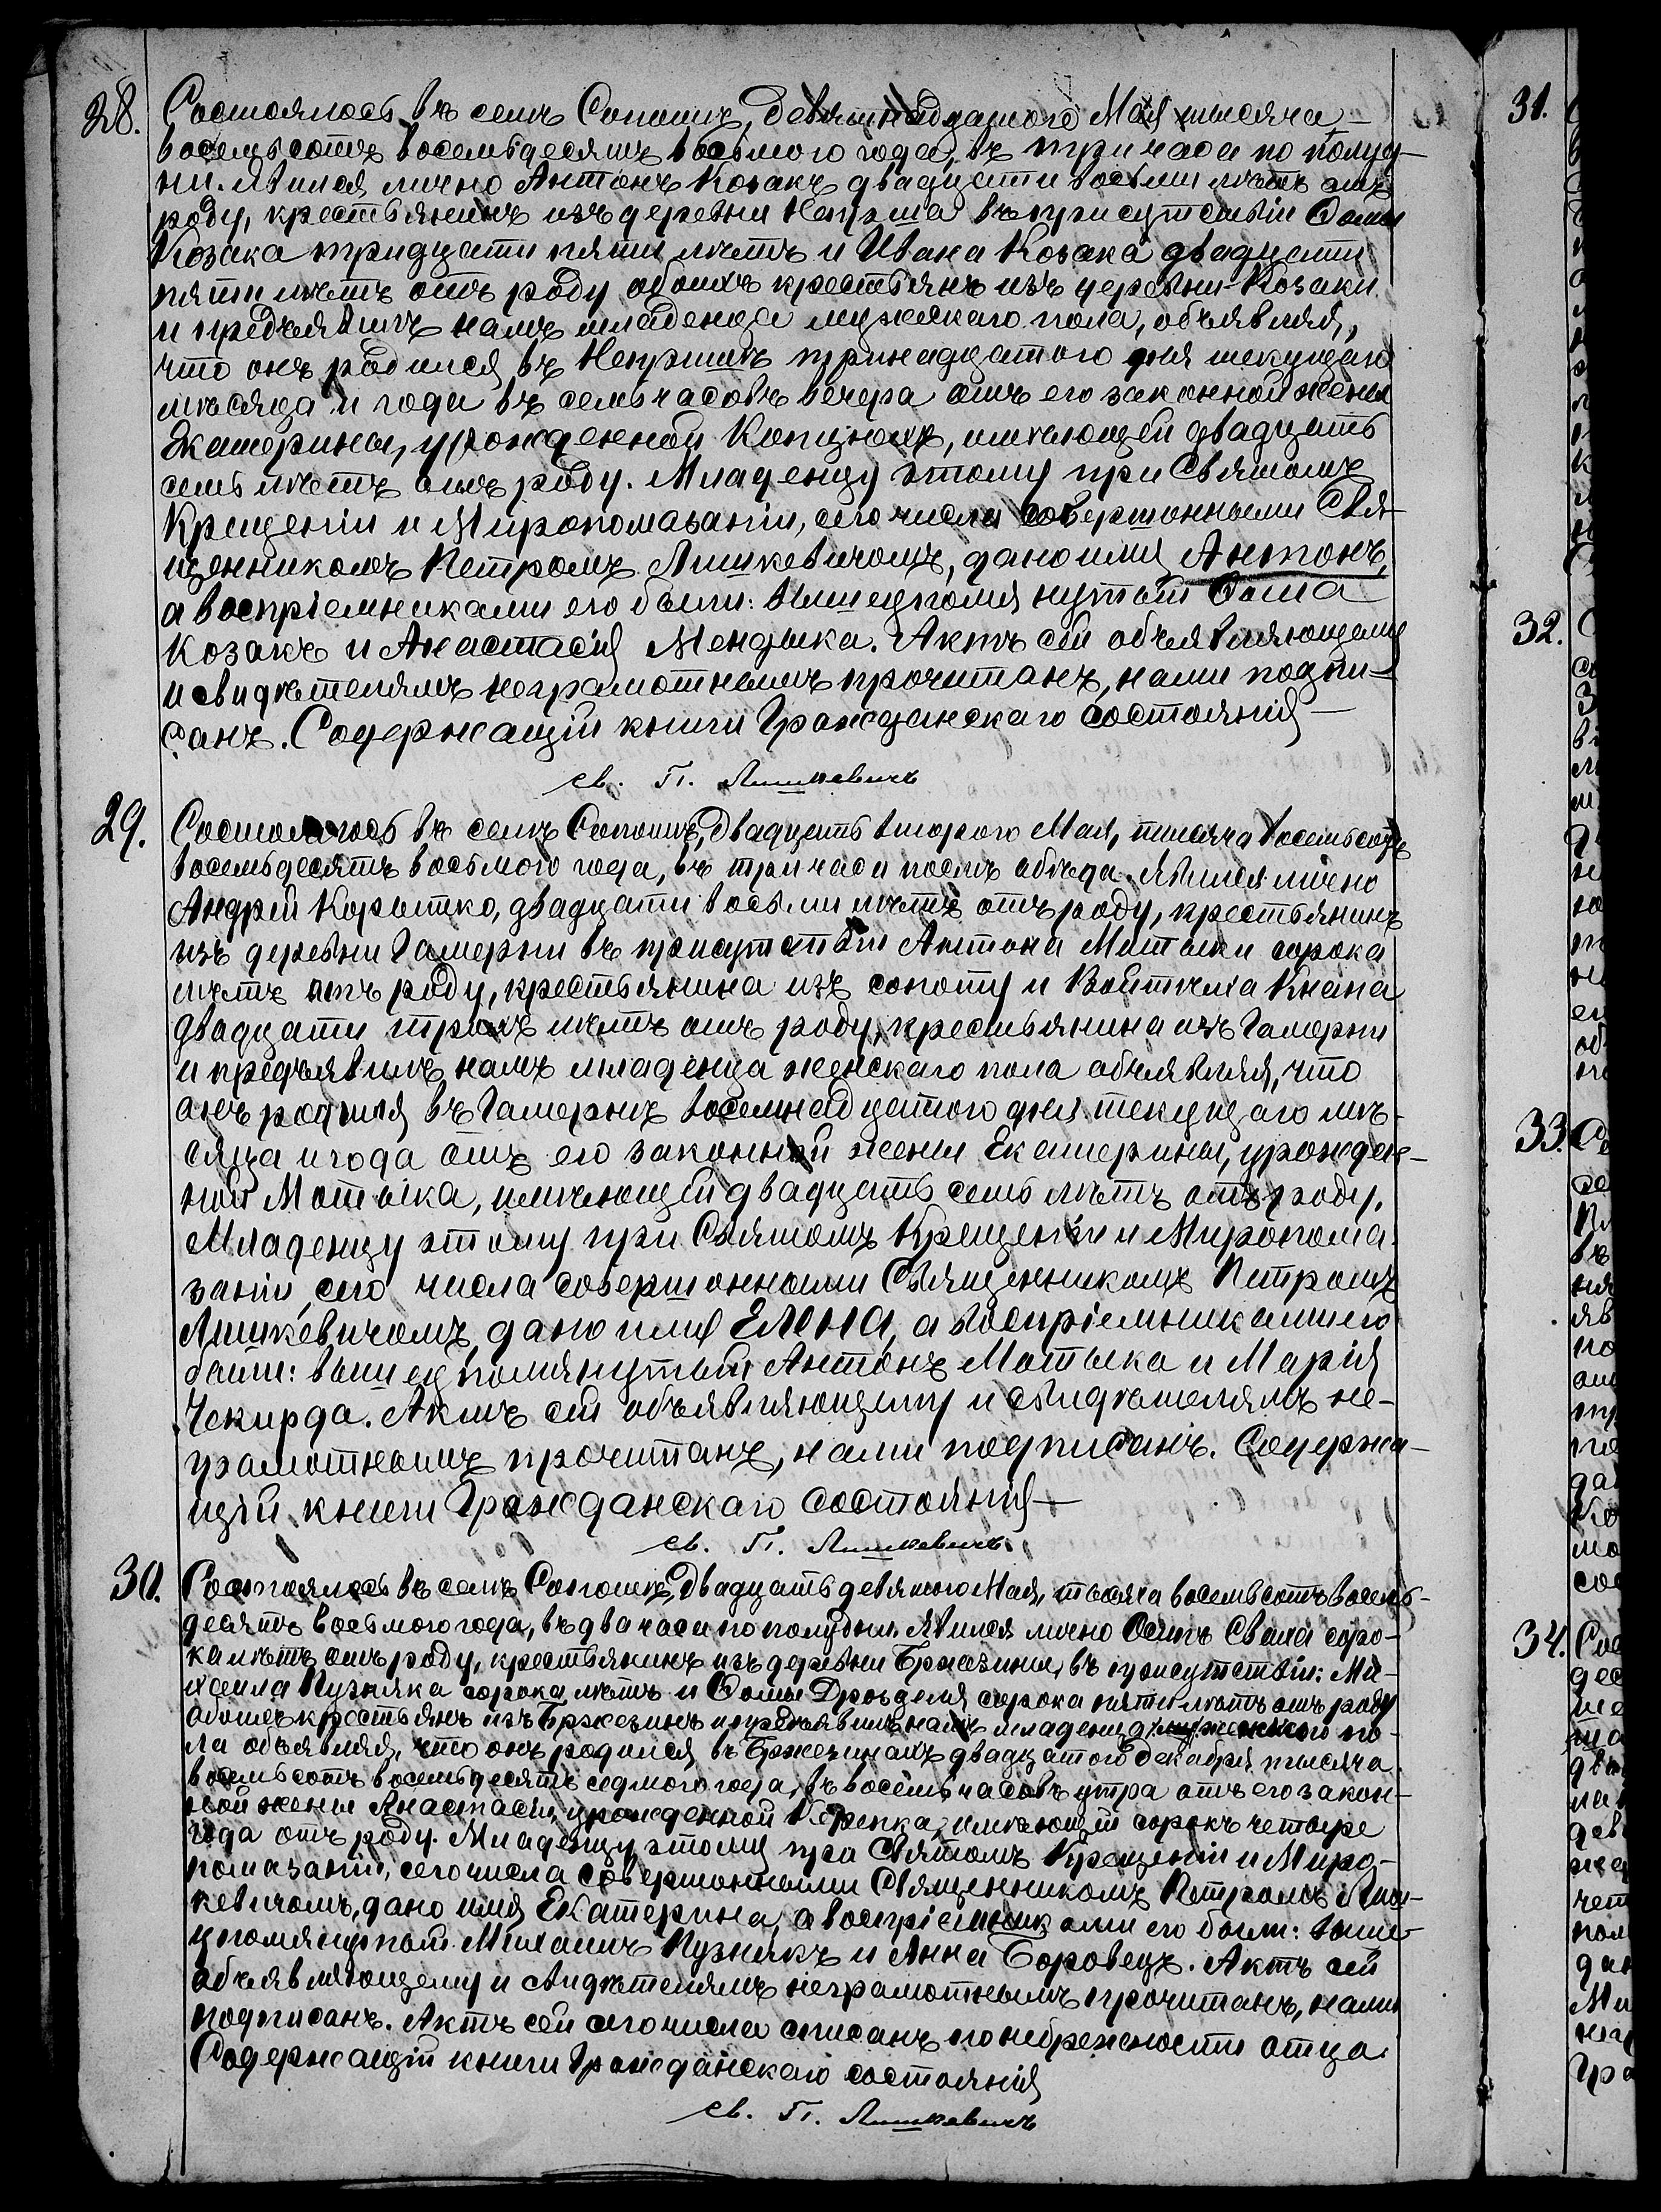 28.
Состоялось въ селѣ Сопотѣ, девятнадцатого Мая тысяча
восемьсотъ восемьдесятъ восьмого года, въ три часа по полуд-
ни. Явился лично Антонъ Козакъ двадцати восьми лѣтъ отъ
роду, крестьянинъ изъ деревни въ присутствіи Фомы
Козака тридцати пяти лѣтъ и Ивана Козака двадцати
пяти лѣтъ отъ роду обоихъ крестьянъ изъ деревни Козаки
и предъявилъ намъ младенца мужескаго пола, объявляя,
что онъ родился въ тринадцатого дня текущаго
мѣсяца и года въ семь часовъ вечера отъ его законной жены
Екатерины, урожденной имѣющей двадцать
семь лѣтъ отъ роду. Младенцу этому при Святомъ
Крещеніи и Мѵропомазаніи, сего числа совершонными Свя-
щенникомъ Петромъ Ляшкевичомъ, дано имя Антонъ,
а воспріемниками его были: вышеупомянутый Фома
Козакъ и Анастасія Мендыка. Актъ сей объявляющему
и свидѣтелямъ неграмотнымъ прочитанъ, нами подпи-
санъ. Содержащій книги Гражданскаго состоянія
св. П. Ляшкевичъ
29.
Состоялось въ селѣ Сопотѣ, двадцать второго Мая, тысяча восемьсотъ
восемьдесятъ восьмого года, въ три часа послѣ обѣда. Явился лично
Андрей Корытко, двадцати восьми лѣтъ отъ роду, крестьянинъ
изъ деревни Гамерни въ присутствіи Антона Мотыки сорока
лѣтъ отъ роду, крестьянина изъ Сопоту и Войтѣха Кнапа
двадцати трехъ лѣтъ отъ роду, крестьянина изъ Гамерни
и предъявилъ намъ младенца женскаго пола объявляя, что
онъ родился въ Гамернѣ восемнадцатого дня текущаго мѣ-
сяца и года отъ его законной жены Екатерины, урожден-
ной Мотыка, имѣющей двадцать семь лѣтъ отъ роду.
Младенцу этому при Святомъ Крещеніи и Миропома-
заніи, сего числа совершонными Священникомъ Петромъ
Ляшкевичомъ дано имя Елена, а воспріемниками его
были: вышеупомянутый Антонъ Мотыка и Марія
Чекирда. Актъ сей объявляющему и свидѣтелямъ не-
грамотнымъ прочитанъ, нами подписанъ. Содержа-
щій книги Гражданскаго состоянія
св. П. Ляшкевичъ
30.
Состоялось въ селѣ Сопотѣ, двадцать девятого Мая, тысяча восемьсотъ восемь-
десятъ восьмого года, въ два часа по полудни. Явился лично Осипъ Свала соро-
ка лѣтъ отъ роду, крестьянинъ изъ деревни Бржезины, въ присутствіи: Ми-
хаила Пузняка сорока лѣтъ и Фомы Дрозделя сорока пяти лѣтъ отъ роду
обоихъ крестьянъ изъ Бржезинъ и предъявилъ намъ младенца женского по-
ла объявляя, что онъ родился въ Бржезинахъ двадцатого Декабря тысяча
восемьсотъ восемьдесятъ седмого года, въ восемь часовъ утра отъ его закон-
ной жены Анастасіи, урожденной имѣющей сорокъ четыре
года отъ роду. Младенцу этому при Святомъ Крещеніи и Миро-
помазаніи, сего числа совершонными Священникомъ Петромъ Ляш-
кевичомъ, дано имя Екатерина, а воспріемниками его были: выше-
упомянутый Михаилъ Пузнякъ и Анна Боровецъ. Актъ сей
объявляющему и свидѣтелямъ неграмотнымъ прочитанъ, нами
подписанъ. Актъ сей сего числа списанъ по небрежности отца.
Содержащій книги Гражданскаго состоянія
св. П. Ляшкевичъ
31.
32.
33.
34.